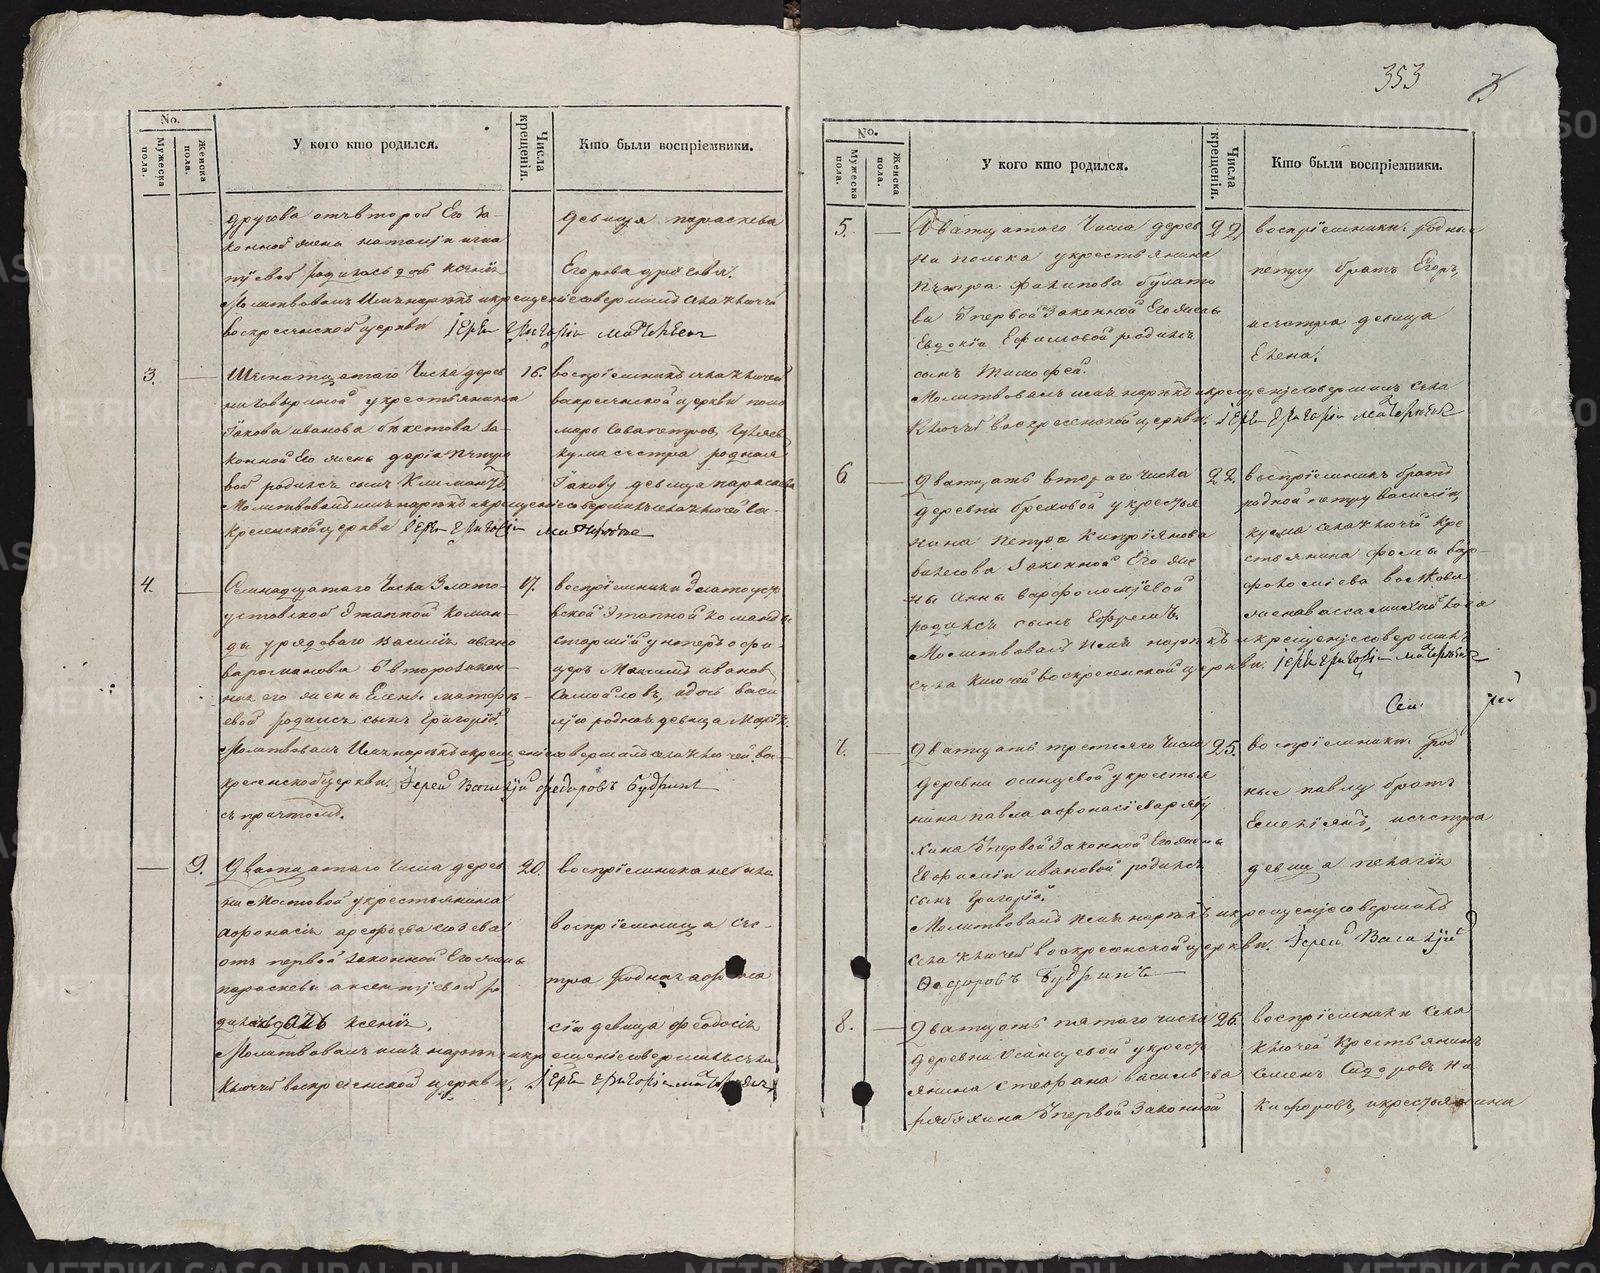 353
3
No.
Мужеска пола.
Женска пола.
У кого кто родился.
Числа крещенія.
Кто были воспріемники.
другова отъ второй Его за-
конной жены наталіи
родилась дочь ксенія
Молитвовалъ Имя нарекъ и крещеніе совершилъ села ключей
воскресенской церкви Іерей Григорій
девица параскева
Егорова
3.
Шеснатцатаго Числа дерев
ни говыриной у крестьянина
Іакова иванова бекетова за-
конной Его жены дарьи петро
вой родился сынъ Климантъ
Молитвовалъ имя нарекъ и крещеніе совершилъ села ключей во-
кресенской церкви Іерей Григорій
16.
воспріемникъ села ключей
воскресенской церкви поно
марь Савва петровъ
кума сестра родная
Іакову девица параскева
4.
Семнадцатаго Числа Злато-
устовской Этапной коман-
ды у рядоваго Василія ивано
ва второзакон-
ной его жены Елены матфе-
евой родился сынъ Григорій.
Молитвовалъ Имя нарекъ и крещеніе совершилъ села ключей вос-
кресенской церкви. Іерей Василій Федоровъ Будринъ
съ причтомъ.
17.
воспріемники Златоусто
вской Этапной команды
старшій унтеръ офи-
церъ Максимъ ивановъ
Самойловъ, и дочь васи
лію родная девица Марія.
9.
Дватцатаго Числа дерев
ни Мостовой у крестьянина
афонасія арефьева
отъ первой законной Его жены
параскевы авксентіевой ро
дилась дочь ксенія.
Молитвовалъ имя нарекъ и крещеніе совершилъ села
ключей воскресенской церкви. Іерей Григорій
20.
воспріемника не было
воспріемница сес-
тра родная афона
сію девица феодосія
No.
Мужеска пола.
Женска пола.
У кого кто родился.
Числа крещенія.
Кто были воспріемники.
5.
Дватцатаго Числа дерев
ни полька у крестьянина
Петра Филипова булато
ва Ѿ первой Законной Его жены
Евдокіи Ефимовой родился
сынъ Тимофей.
Молитвовалъ имя нарекъ и крещеніе совершилъ села
Ключей воскресенской церкви. Іерей Григорій
22.
воспріемники: родные
петру братъ Егоръ,
и сестра девица
Елена.
6
Дватцать втораго числа
деревни бреховой у крестья
нина Петра Кипріянова
законной Его же
ны Анны варфоломіевой
родился сынъ Ефремъ.
Молитвовалъ Имя нарекъ и крещеніе совершилъ
села Ключей воскресенской церкви. Іерей Григорій
22.
воспріемникъ братъ
родной петру василій,
кума села ключей кре
стьянина фомы вар-
фоломіева волкова
жена васса михайлова
7.
Дватцать третьяго Числа
деревни осинцевой у крестья
нина павла афонасіева рябу
хина Ѿ первой Законной Его жены
Евфиміи ивановой родился
сынъ Григорій.
Молитвовалъ Имя нарекъ и крещеніе совершилъ
села ключей воскресенской церкви. Іерей Василій
Федоровъ Будринъ
25.
воспріемники: род
ные павлу братъ
Емельянъ, и сестра
девица пелагія
8.
Дватцать пятаго числа
деревни Осинцевой у кресть
янина Стефана васильева
рябухина Ѿ первой Законной
26.
воспріемники Села
ключей крестьянинъ
семенъ Сидоровъ
и крестьянина